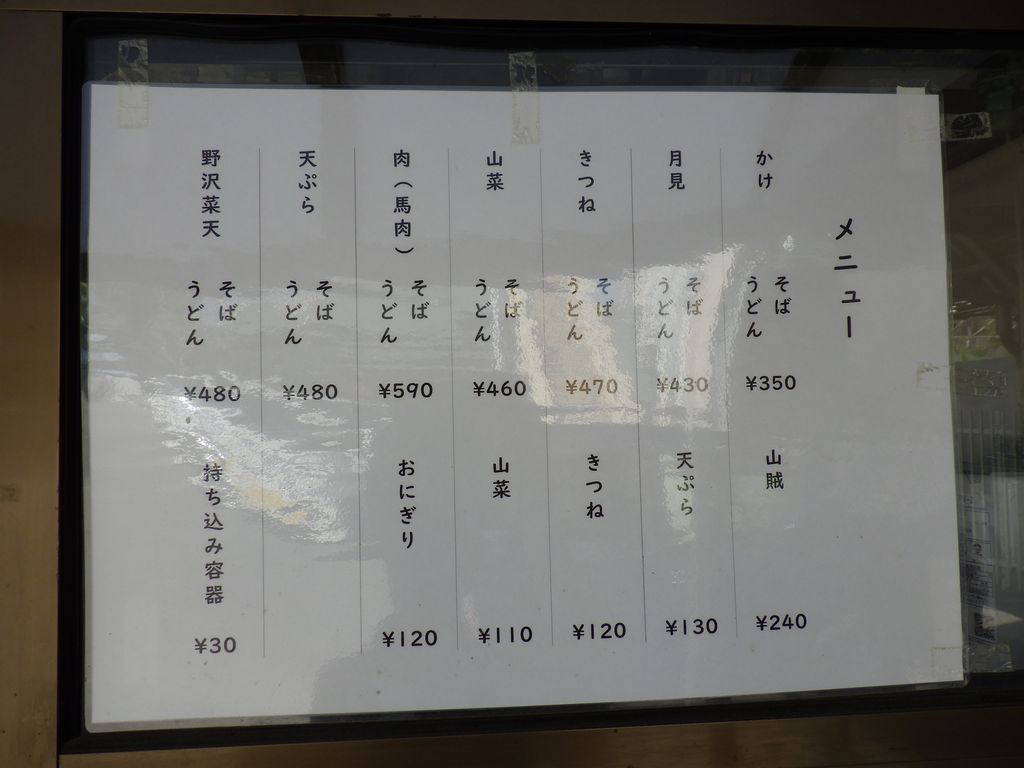 メニュー
かけ そば うどん ¥350
月見 そば うどん ¥430
きつね そば うどん ¥470
山菜 そば うどん ¥460
肉(馬肉) そば うどん ¥590
天ぷら そば うどん ¥480
野沢菜天 そば うどん ¥480
山賊 ¥240
天ぷら ¥130
きつね ¥120
山菜 ¥110
おにぎり ¥120
持ち込み容器 ¥30